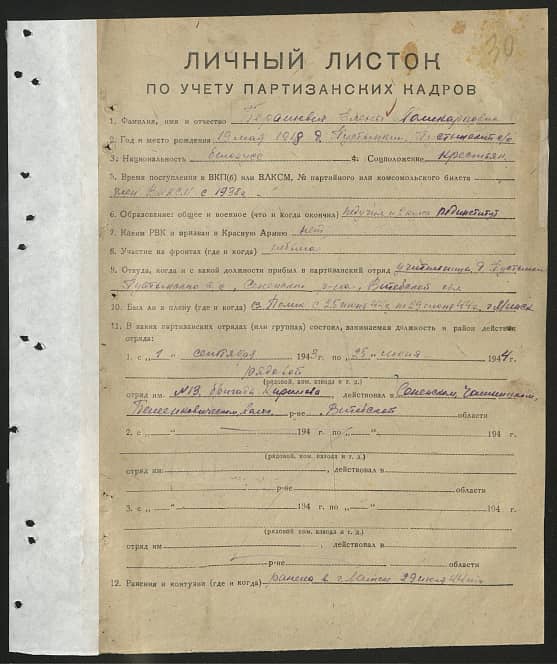 30
ЛИЧНЫЙ ЛИСТОК
ПО УЧЕТУ ПАРТИЗАНСКИХ КАДРОВ
1. Фамилия, имя и отчество Елена Поликарповна
2. Год и место рождения 19 мая 1918 д.
3. Национальность белорус 4. Соцположение крестьян.
5. Время поступления в ВКП(б) или ВЛКСМ, № партийного или комсомольского билета
член ВЛКСМ с 1938 г.
6. Образование: общее и военное (что и когда окончил) пединститут
7. Каким РВК и призван в Красную Армию нет
8. Участие на фронтах (где и когда) не была
9. Откуда, когда и с какой должности прибыл в партизанский отряд учительница, д.
с/с, Сенненского р-на, Витебской обл.
10. Был ли в плену (где и когда) В с 25 июня 44 г. по 29 июня 44 г. г.
11. В каких партизанских отрядах (или группах) состоял, занимаемая должность и район действия
отряда:
1. с „1 " сентября 1943 г. по „25 " июня 1944 г.
рядовой
(рядовой, ком. взвода и т. д.)
отряд им. №13, бригады Кирилова, действовал в Сенненском, Чашникском,
Бешенковичском р-не Витебской области
2. с „ " 194 г. по „ " 194 г.
(рядовой, ком. взвода и т. д.)
отряд им. , действовал в
р-не области
3. с „ " 194 г. по „ " 194 г.
(рядовой, ком. взвода и т. д.)
отряд им. , действовал в
р-не области
12. Ранения и контузии (где и когда) ранена в г. 29 июня 44 г.